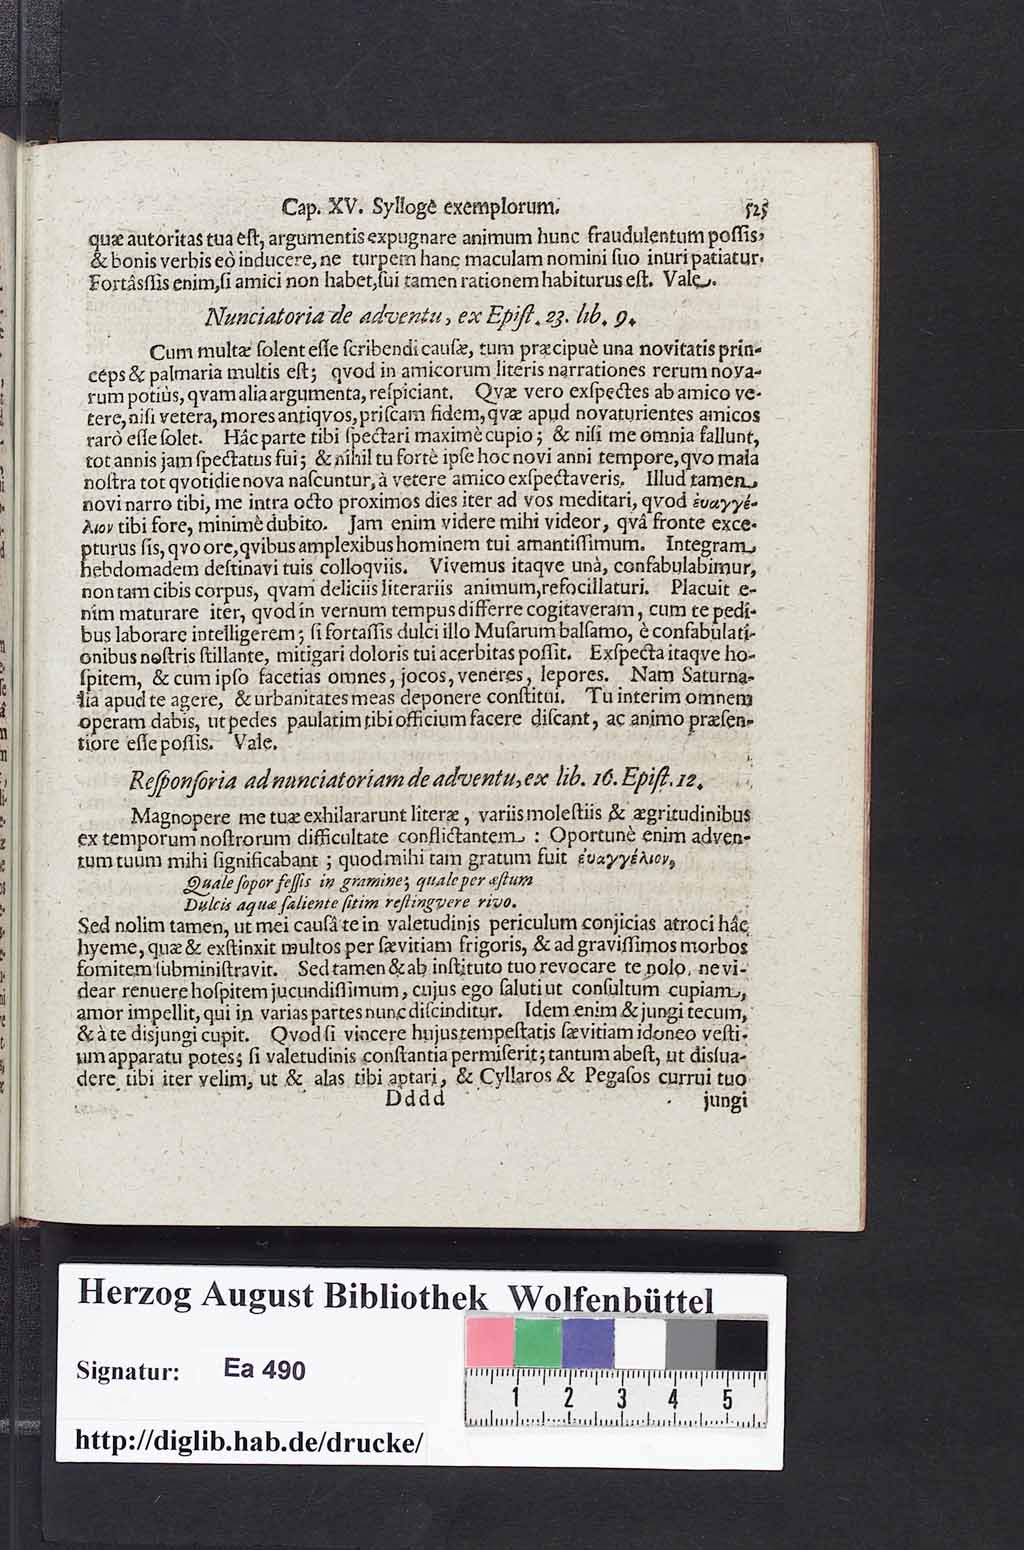 Cap. XV. Sylloge exemplorum. 525
quæ autoritas tua eſt, argumentis expugnare animum hunc fraudulentum poſſis,
& bonis verbis eò inducere, ne turpem hanc maculam nomini ſuo inuri patiatur.
Fortâsſis enim, ſi amici non habet, ſui tamen rationem habiturus eſt. Vale.
Nunciatoria de adventu, ex Epiſt. 23. lib. 9.
Cum multæ ſolent eſſe ſcribendi cauſæ, tum præcipuè una novitatis prin-
ceps & palmaria multis eſt; qvod in amicorum literis narrationes rerum nova-
rum potiùs, qvam alia argumenta, reſpiciant. Qvæ vero exſpectes ab amico ve-
tere, niſi vetera, mores antiqvos, priſcam fidem, qvæ apud novaturientes amicos
rarò eſſe ſolet. Hâc parte tibi ſpectari maximè cupio; & niſi me omnia fallunt,
tot annis jam ſpectatus fui; & nihil tu fortè ipſe hoc novi anni tempore, qvo mala
noſtra tot qvotidie nova naſcuntur, à vetere amico exſpectaveris. Illud tamen
novi narro tibi, me intra octo proximos dies iter ad vos meditari, qvod ἐυαγγέ-
λιον tibi fore, minimè dubito. Jam enim videre mihi videor, qvâ fronte exce-
pturus ſis, qvo ore, qvibus amplexibus hominem tui amantiſſimum. Integram
hebdomadem deſtinavi tuis colloqviis. Vivemus itaqve unà, confabulabimur,
non tam cibis corpus, qvam deliciis literariis animum, refocillaturi. Placuit e-
nim maturare iter, qvod in vernum tempus differre cogitaveram, cum te pedi-
bus laborare intelligerem; ſi fortaſſis dulci illo Muſarum balſamo, è confabulati-
onibus noſtris ſtillante, mitigari doloris tui acerbitas poſſit. Exſpecta itaqve ho-
ſpitem, & cum ipſo facetias omnes, jocos, veneres, lepores. Nam Saturna-
lia apud te agere, & urbanitates meas deponere conſtitui. Tu interim omnem
operam dabis, ut pedes paulatim tibi officium facere diſcant, ac animo præſen-
tiore eſſe poſſis. Vale.
Reſponſoria ad nunciatoriam de adventu, ex lib. 16. Epiſt. 12.
Magnopere me tuæ exhilararunt literæ, variis moleſtiis & ægritudinibus
ex temporum noſtrorum difficultate conflictantem : Oportunè enim adven-
tum tuum mihi ſignificabant ; quod mihi tam gratum fuit ἐυαγγέλιον,
Quale ſopor feſſis in gramine; quale per æſtum
Dulcis aquæ ſaliente ſitim reſtingvere rivo.
Sed nolim tamen, ut mei cauſâ te in valetudinis periculum conjicias atroci hâc
hyeme, quæ & exſtinxit multos per ſævitiam frigoris, & ad graviſſimos morbos
fomitem ſubminiſtravit. Sed tamen & ab inſtituto tuo revocare te nolo, ne vi-
dear renuere hoſpitem jucundiſſimum, cujus ego ſaluti ut conſultum cupiam,
amor impellit, qui in varias partes nunc diſcinditur. Idem enim & jungi tecum,
& à te disjungi cupit. Qvod ſi vincere hujus tempeſtatis ſævitiam idoneo veſti-
um apparatu potes; ſi valetudinis conſtantia permiſerit; tantum abeſt, ut disſua-
dere tibi iter velim, ut & alas tibi aptari, & Cyllaros & Pegaſos currui tuo
Dddd jungi
Herzog August Bibliothek Wolfenbüttel
Signatur: Ea 490
1 2 3 4 5
http://diglib.hab.de/drucke/